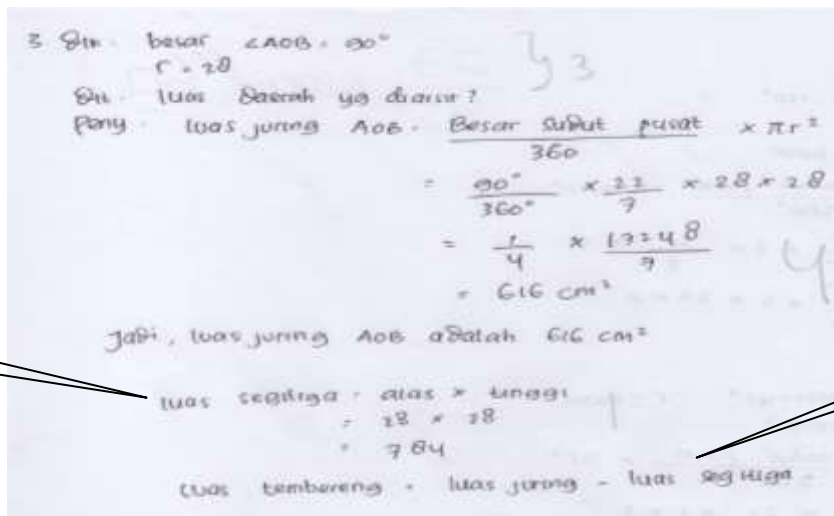 3 Dik. besar ∠AOB = 90°
r = 28
} 3
Dit. luas daerah yg diarsir?
Peny. luas juring AOB = Besar sudut pusat / 360 × πr²
= 90° / 360° × 22 / 7 × 28 × 28
= 1 / 4 × 17248 / 7
4
= 616 cm²
Jadi, luas juring AOB adalah 616 cm²
luas segitiga = alas × tinggi
= 28 × 28
= 784
luas tembereng = luas juring - luas segitiga